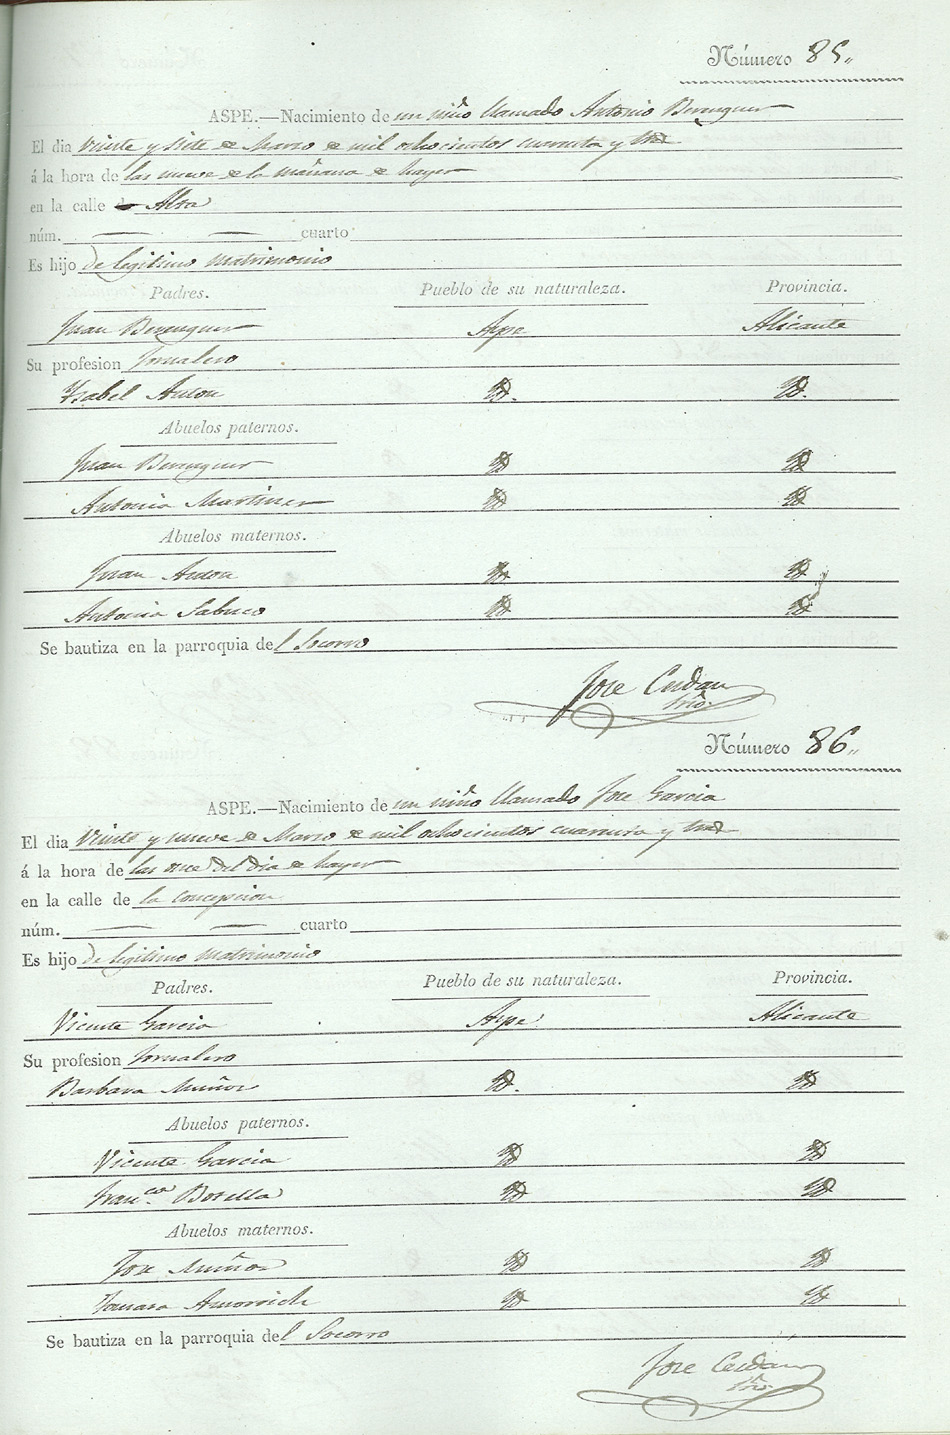 Número 85.,
ASPE.—Nacimiento de un niño llamado Antonio Berenguer
El dia Vinte y siete de Marzo de mil ochocientos cuarenta y tres
á la hora de las nueve de la mañana de hayer
en la calle de Alta
núm. — — cuarto
Es hijo de legitimo matrimonio
Padres. Pueblo de su naturaleza. Provincia.
Juan Berenguer Aspe Alicante
Su profesion Jornalero
Ysabel Anton Yd. Yd.
Abuelos paternos.
Juan Berenguer Yd Yd
Antonia Martinez Yd Yd
Abuelos maternos.
Juan Anton Yd Yd
Antonia Sabuco Yd Yd
Se bautiza en la parroquia del Socorro
Jose Cerdan
Srio.
Número 86.,
ASPE.—Nacimiento de un niño llamado Jose Garcia
El dia Vinte y nueve de Marzo de mil ochocientos cuarenta y tres
á la hora de las once del dia de hayer
en la calle de la concepcion
núm. — — cuarto
Es hijo de legitimo matrimonio
Padres. Pueblo de su naturaleza. Provincia.
Vicente Garcia Aspe Alicante
Su profesion Jornalero
Barbara Muñoz Yd. Yd
Abuelos paternos.
Vicente Garcia Yd Yd
Fran.ca Botella Yd Yd
Abuelos maternos.
Jose Muñoz Yd Yd
Yd Yd
Se bautiza en la parroquia del Socorro
Jose Cerdan
Srio.